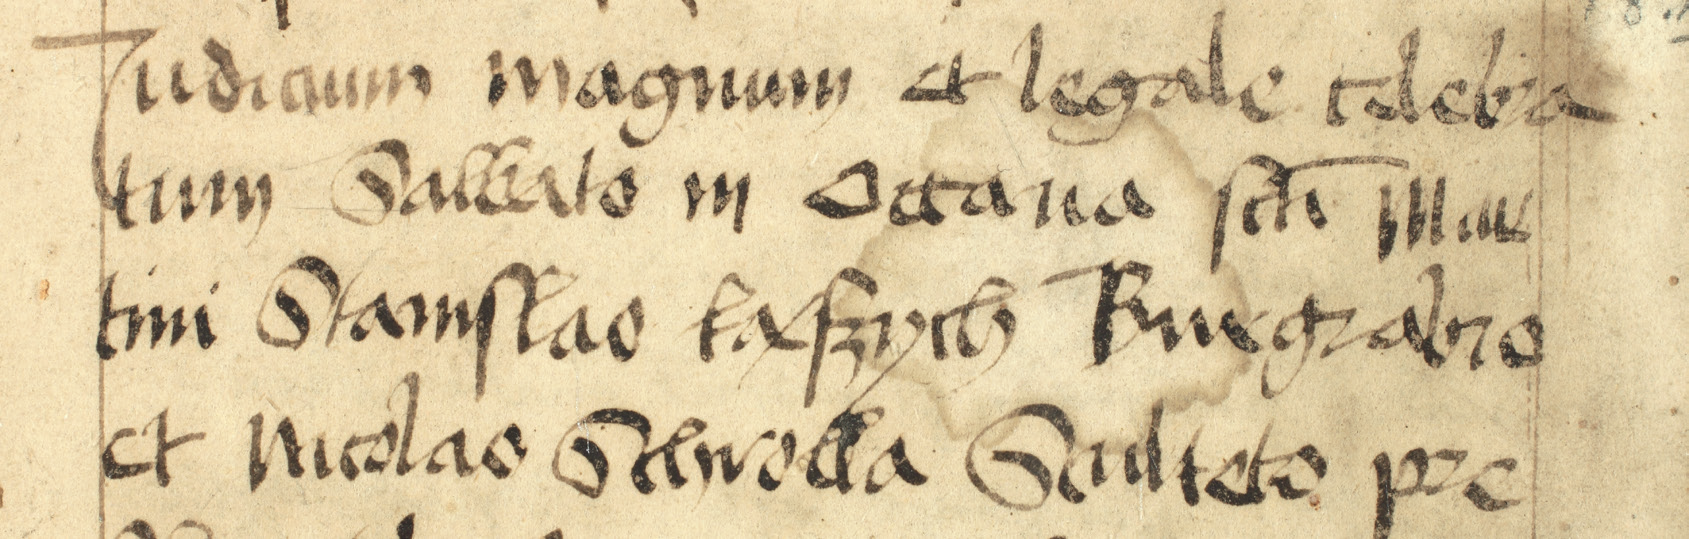 Iudicium magnum et legale celebra
tum Sabbato in Octaua scti Mar
tini Stanislao kaszych Burgrabio
et Nicolao Schrodla Sculteto pre